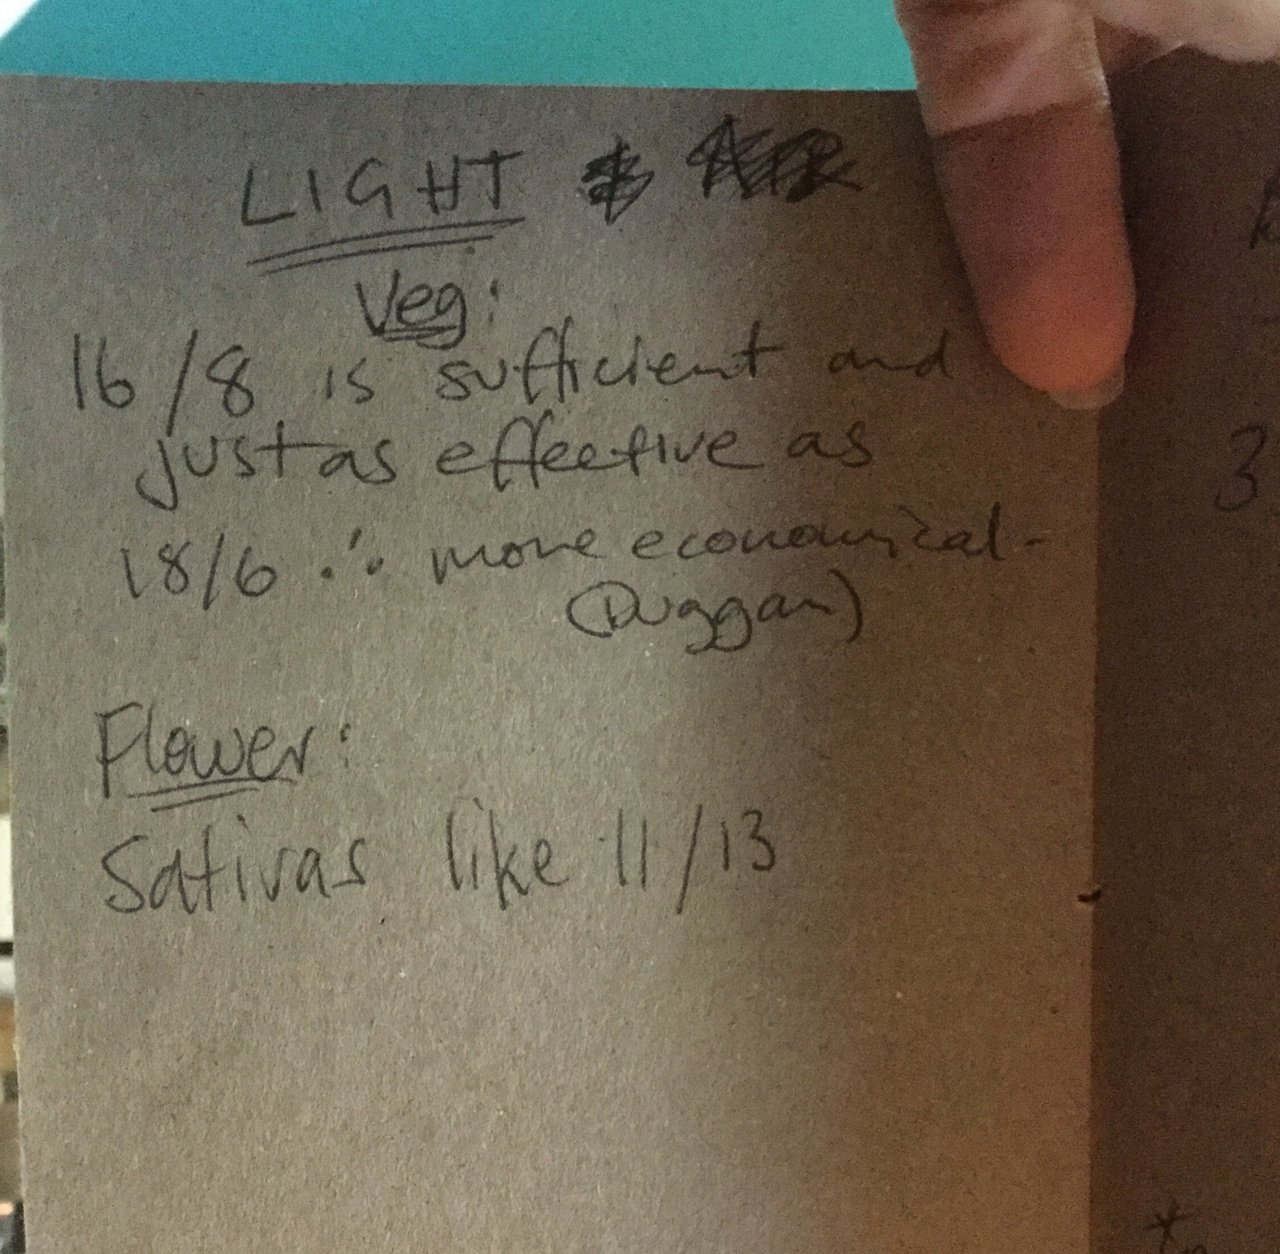 LIGHT
Veg:
16/8 is sufficient and
just as effective as
18/6 ∴ more economical -
(Duggan)
Flower:
Sativas like 11/13
3
*